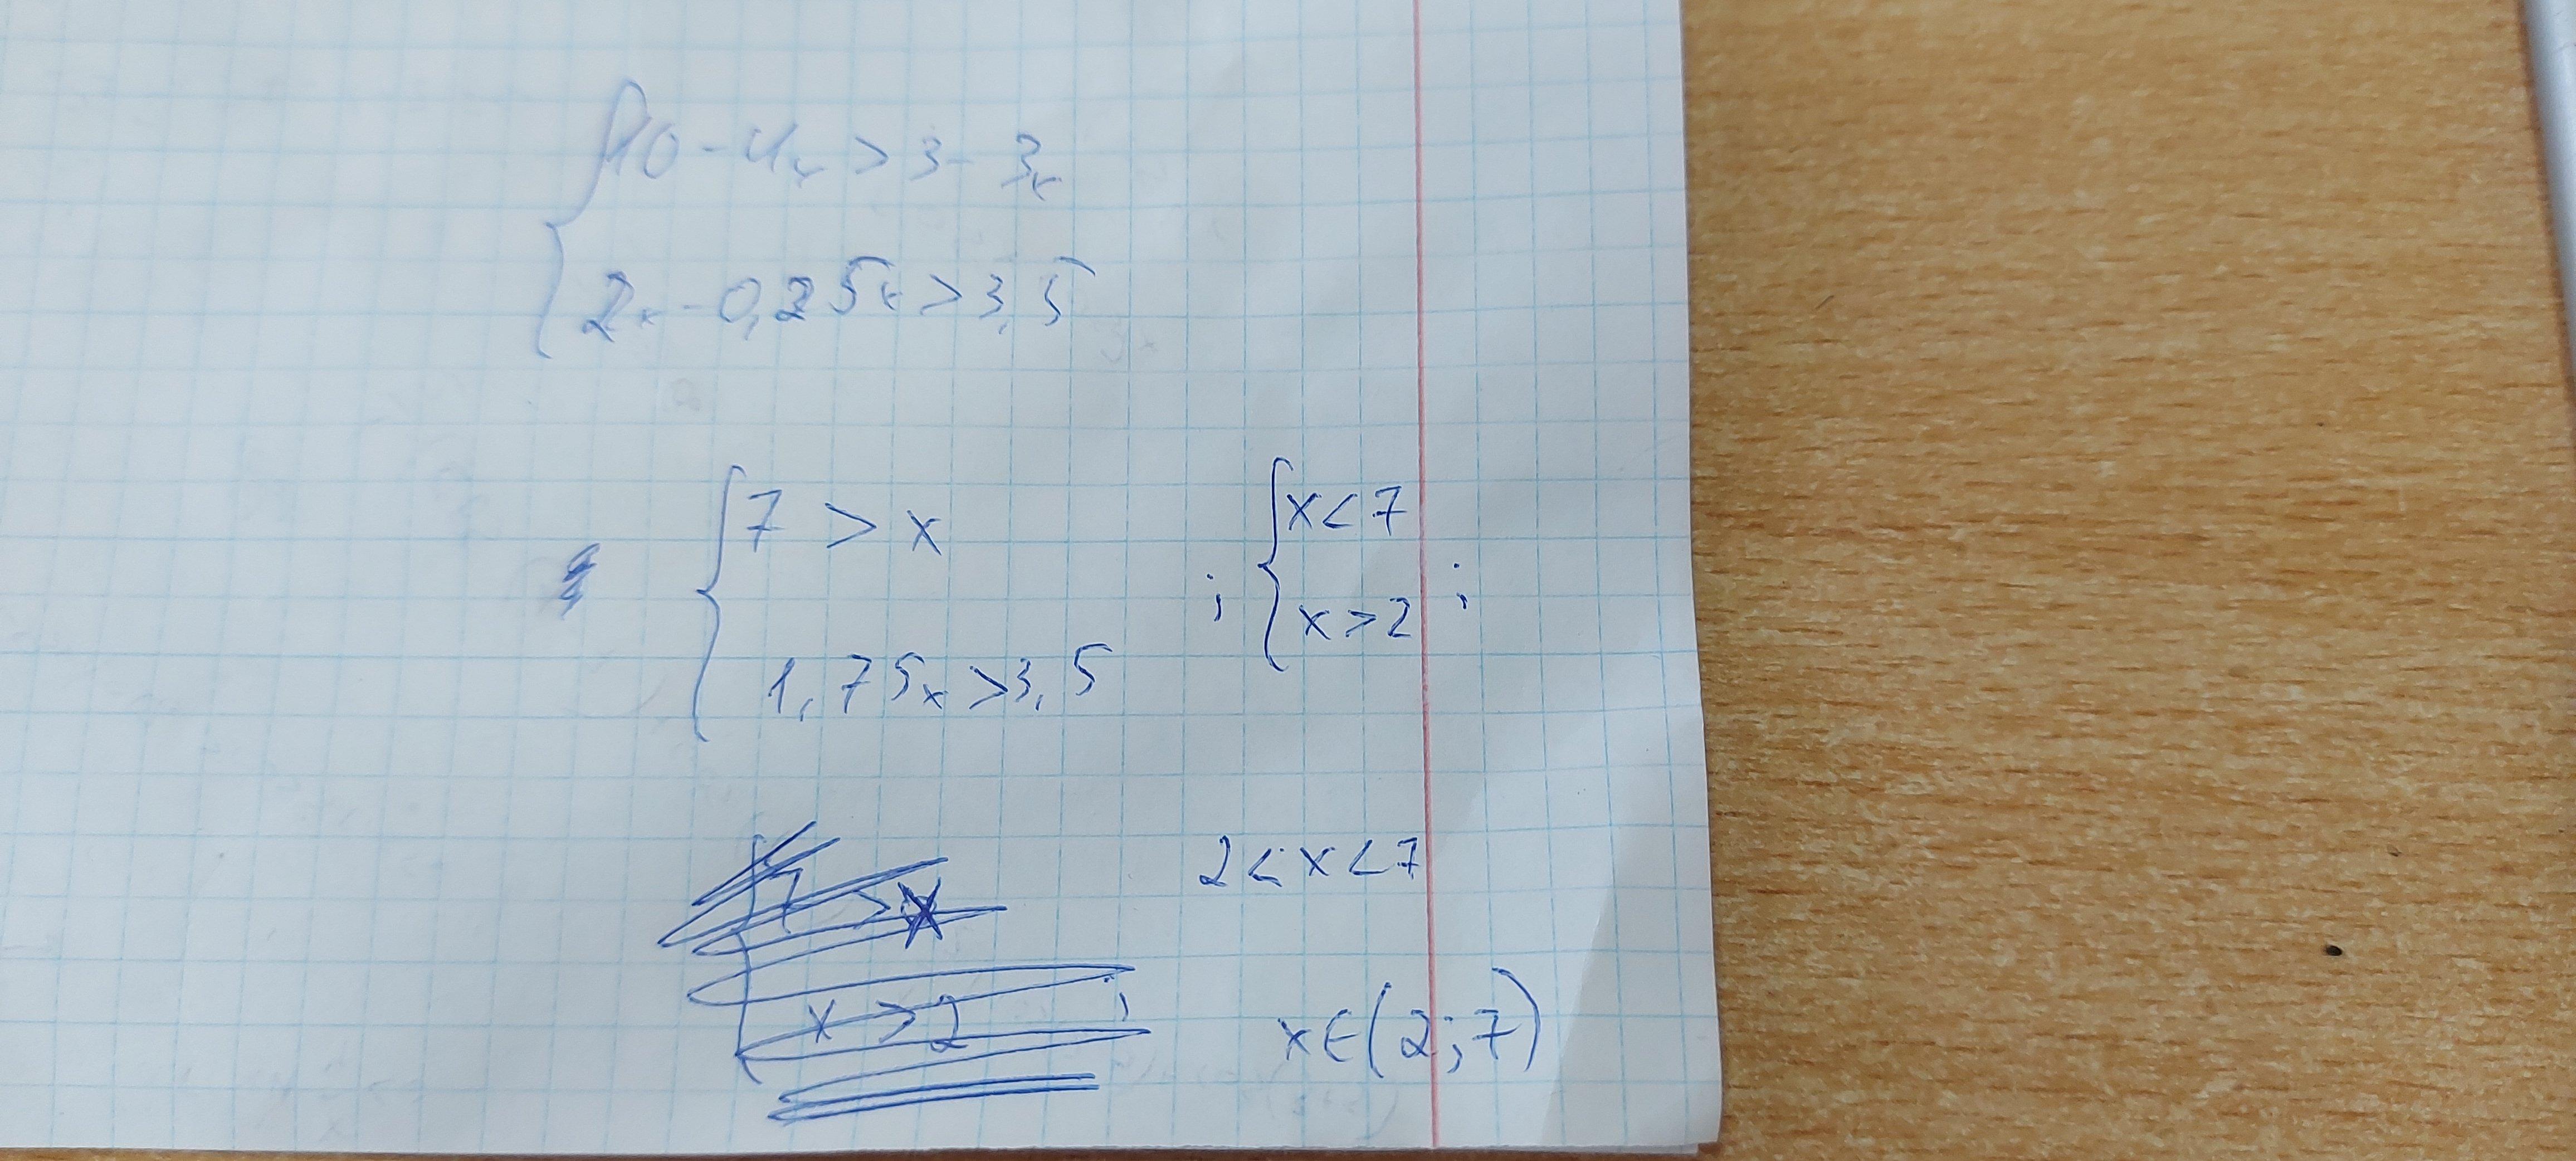 10-4x>3-3x
2x-0,25x>3,5
7 > x
1,75x>3,5
;
x<7
x>2
;
7 > x
x > 2 ;
2<x<7
x∈(2;7)